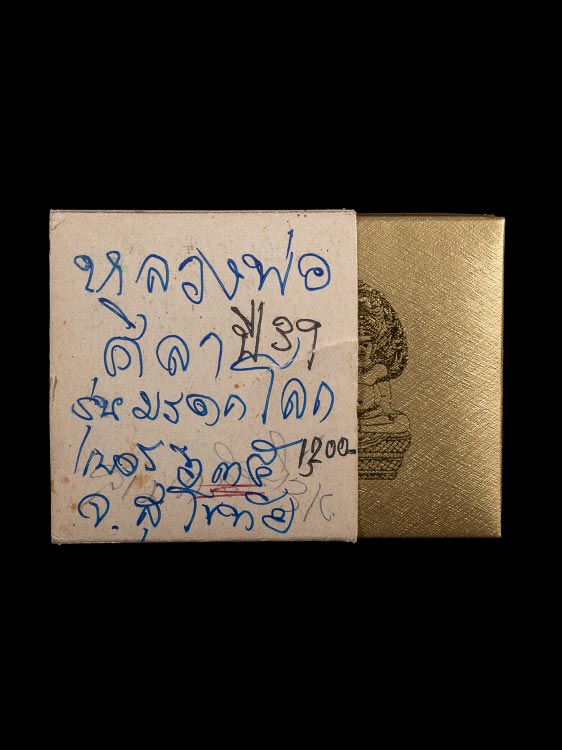 หลวงพ่อ
ศิลา ปี 39
รุ่นมรดกโลก
เบอร์ ๖๓๕ 1200-
จ. สุโขทัย